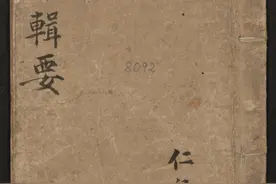 輯要
8092
仁